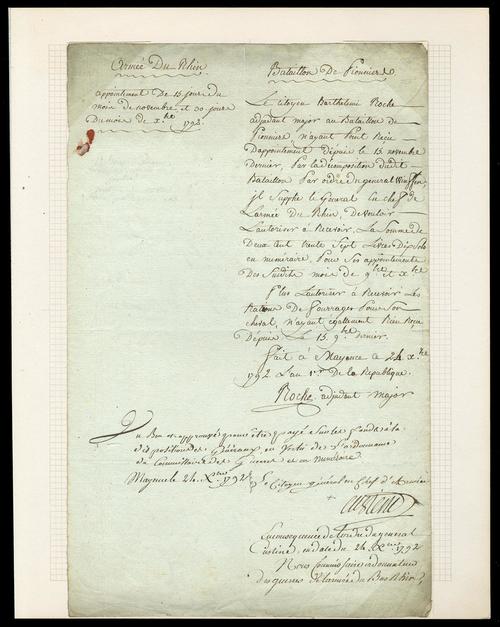 Armée Du Rhin
appointement De 15 jours du
mois de novembre et 20 jours
Du mois de xbre
1792.
Bataillon De Pionniers
Le citoyen Barthelemi Roche
adjudant major au Bataillon de
Pionniers, n'ayant Point Recu
Dappointement Depuis le 15 novembre
Dernier, Par la décomposition dudit
Bataillon Par ordre du general
jl Supplie le General En Chef de
Larmée Du Rhin, De vouloir
Lautoriser à Recevoir, La Somme de
Deux Cent trente Sept Livres Dix Sols
en numéraire, Pour Ses appointements
Des Susdits mois de 9bre et xbre
Plus Lautoriser à Recevoir Les
Rations De fourrages Pour Son
cheval, n'ayant égallement Rien Reçu
Depuis Le 15 9bre dernier.
fait à Mayence le 24 xbre
1792 Lan 1er De la Republique.
Roche adjudant major
Bon et approuvé pour être payé sur les fonds à la
disposition des Généraux, en vertu de l'ordonnance
du Commissaire des Guerres et en numéraire
Mayence le 24 Xbre 1792
Le Citoyen général en Chef d'armée
Custine
En consequence de l'ordre du general
Custine, en date du 24 Xbre 1792
Nous Commissaire ordonnateur
des guerres de larmée du Bas Rhin